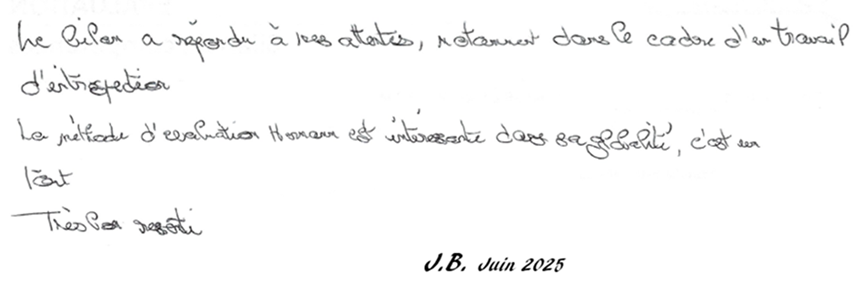 Le bilan a répondu à mes attentes, notamment dans le cadre d'un travail
d'introspection
La méthode d'évaluation Hermann est intéressante dans sa globalité, c'est un
tout
Très bon ressenti
J.B. Juin 2025